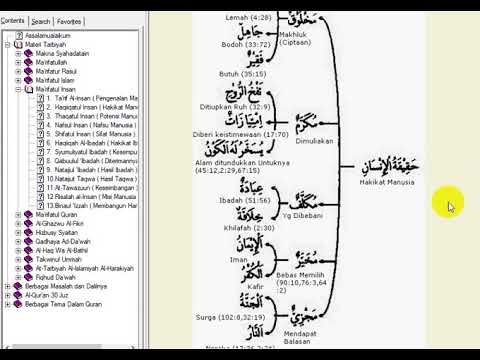 Contents
Search
Favorites
Assalamualaikum
Materi Tarbiyah
Makna Syahadatain
Ma'rifatullah
Ma'rifatur Rasul
Ma'rifatul Islam
Ma'rifatul Insan
1. Ta'rif Al-Insan ( Pengenalan Ma
2. Haqiqatul Insan ( Hakikat Manusi
3. Thaqatul Insan ( Potensi Manusi
4. Nafsul Insan ( Nafsu Manusia )
5. Shifatul Insan ( Sifat Manusia )
6. Haqiqatul Al-Ibadah ( Hakikat Iba
7. Syumuliyatul Ibadah ( Kesempurn
8. Qabuulul Ibadah ( Diterimanny
9. Nataijul Ibadah ( Hasil Ibadah )
10. Nataijul Taqwa ( Hasil Taqwa )
11. At-Tawazzun ( Kesembangan )
12. Risalah al-Insan ( Misi Manusia
13. Binaul 'Izzah ( Membangun Har
Ma'rifatul Quran
Al-Ghazwu Al-Fikri
Hizbusy Syaitan
Qadhaya Ad-Da'wah
Al-Haq Wa Al-Bathil
Takwinul Ummah
At-Tarbiyah Al-Islamiyah Al-Harakiyah
Fiqhud Da'wah
Berbagai Masalah dan Dalilnya
Al-Qur'an 30 Juz
Berbagai Tema Dalam Quran
حَقِيْقَةُ الْإِنْسَانِ
Hakikat Manusia
مَخْلُوْقٌ
Makhluk
(Ciptaan)
Lemah (4:28)
جَاهِلٌ
Bodoh (33:72)
فَقِيْرٌ
Butuh (35:15)
مُكَرَّمٌ
Dimuliakan
نَفْخُ الرُّوْحِ
Ditiupkan Ruh (32:9)
اِمْتِيَازَاتٌ
Diberi keistimewaan (17:70)
يُسَخَّرُ لَهُ الْكَوْنُ
Alam ditundukkan Untuknya
(45:12,2:29,67:15)
مُكَلَّفٌ
Yg Dibebani
عِبَادَةٌ
Ibadah (51:56)
خِلَافَةٌ
Khilafah (2:30)
مُخَيَّرٌ
Bebas Memilih
(90:10,76:3,64
:2)
الْإِيْمَانُ
Iman
الْكُفْرُ
Kafir
مَجْزِيٌّ
Mendapat
Balasan
الْجَنَّةُ
Surga (102:8,32:19)
النَّارُ